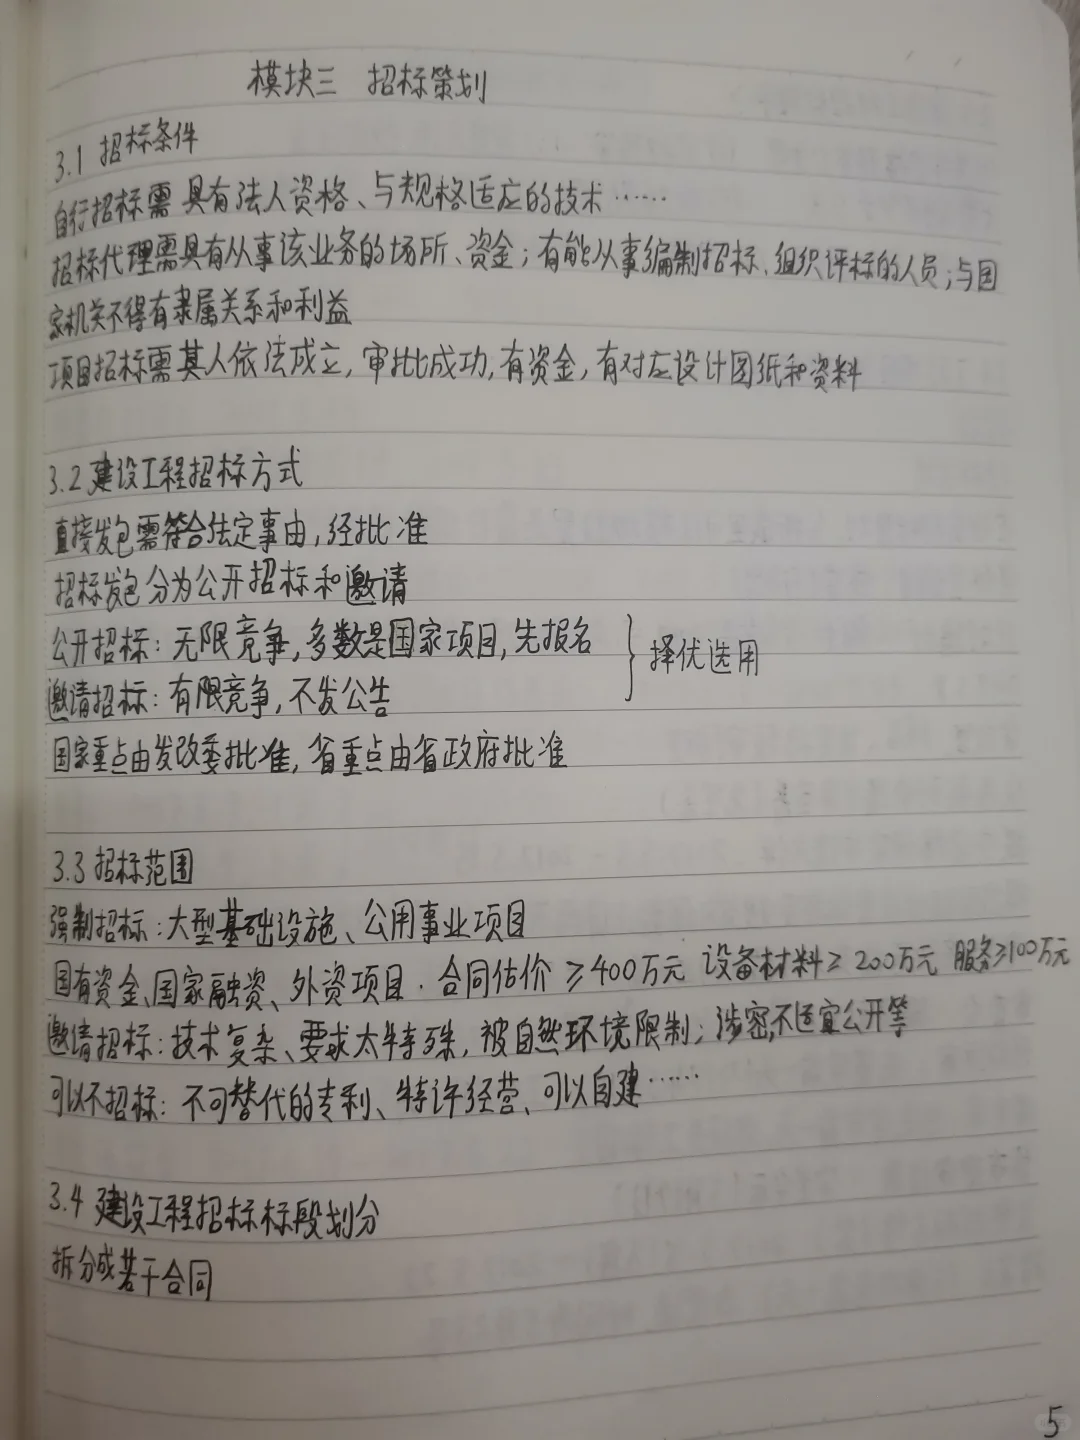 模块三 招标策划
3.1 招标条件
自行招标需具有法人资格、与规格适应的技术……
招标代理需具有从事该业务的场所、资金；有能从事编制招标、组织评标的人员；与国
家机关不得有隶属关系和利益
项目招标需其人依法成立，审批成功，有资金，有对应设计图纸和资料
3.2 建设工程招标方式
直接发包需符合法定事由，经批准
招标发包分为公开招标和邀请
公开招标：无限竞争，多数是国家项目，先报名
择优选用
邀请招标：有限竞争，不发公告
国家重点由发改委批准，省重点由省政府批准
3.3 招标范围
强制招标：大型基础设施、公用事业项目
国有资金、国家融资、外资项目．合同估价≥400万元 设备材料≥200万元 服务≥100万元
邀请招标：技术复杂、要求太特殊，被自然环境限制；涉密，不适宜公开等
可以不招标：不可替代的专利、特许经营、可以自建……
3.4 建设工程招标标段划分
拆分成若干合同
5